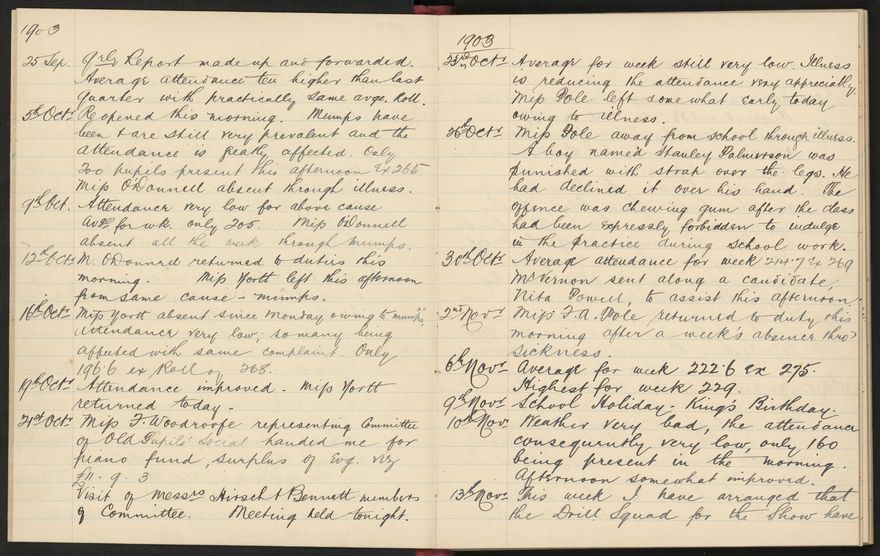 1903
25 Sep. Qrly Report made up and forwarded.
Average attendance ten higher than last
quarter with practically same avge. Roll.
5th Octr Reopened this morning. Mumps have
been & are still very prevalent and the
attendance is greatly affected. Only
200 pupils present this afternoon Ex 265
Miss O'Donnell absent through illness.
9th Oct. Attendance very low for above cause
Avge for wk. only 205. Miss O'Donnell
absent all the week through mumps.
12th Octr M. O'Donnell returned to duties this
morning. Miss Yortt left this afternoon
from same cause - mumps.
16th Octr Miss Yortt absent since Monday owing to mumps.
Attendance very low; so many being
affected with same complaint. Only
196.6 ex Roll of 268.
19th Octr Attendance improved. Miss Yortt
returned today.
21st Octr Miss F. Woodroofe representing Committee
of Old Pupils' Social handed me for
piano fund, surplus of Evg. viz
£11 - 9 - 3
Visit of Messrs Hirsch & Bennett members
of Committee. Meeting held tonight.
1903
23rd Octr Average for week still very low. Illness
is reducing the attendance very appreciably.
Miss Pole left somewhat early today
owing to illness.
26th Octr Miss Pole away from school through illness.
A boy named Stanley Palmerson was
punished with strap over the legs. He
had declined it over his hand. The
offence was chewing gum after the class
had been expressly forbidden to indulge
in the practice during school work.
30th Octr Average attendance for week 214.7 Ex 269
McVernon sent along a candidate,
Nita Powell, to assist this afternoon.
2nd Novr Miss F.A. Pole returned to duty this
morning after a week's absence thro'
sickness.
6th Novr Average for week 222.6 ex 275.
Highest for week 229.
9th Novr School Holiday. King's Birthday.
10th Nov. Weather very bad, the attendance
consequently very low, only 160
being present in the morning.
Afternoon somewhat improved.
13th Novr This week I have arranged that
the Drill Squad for the Show have